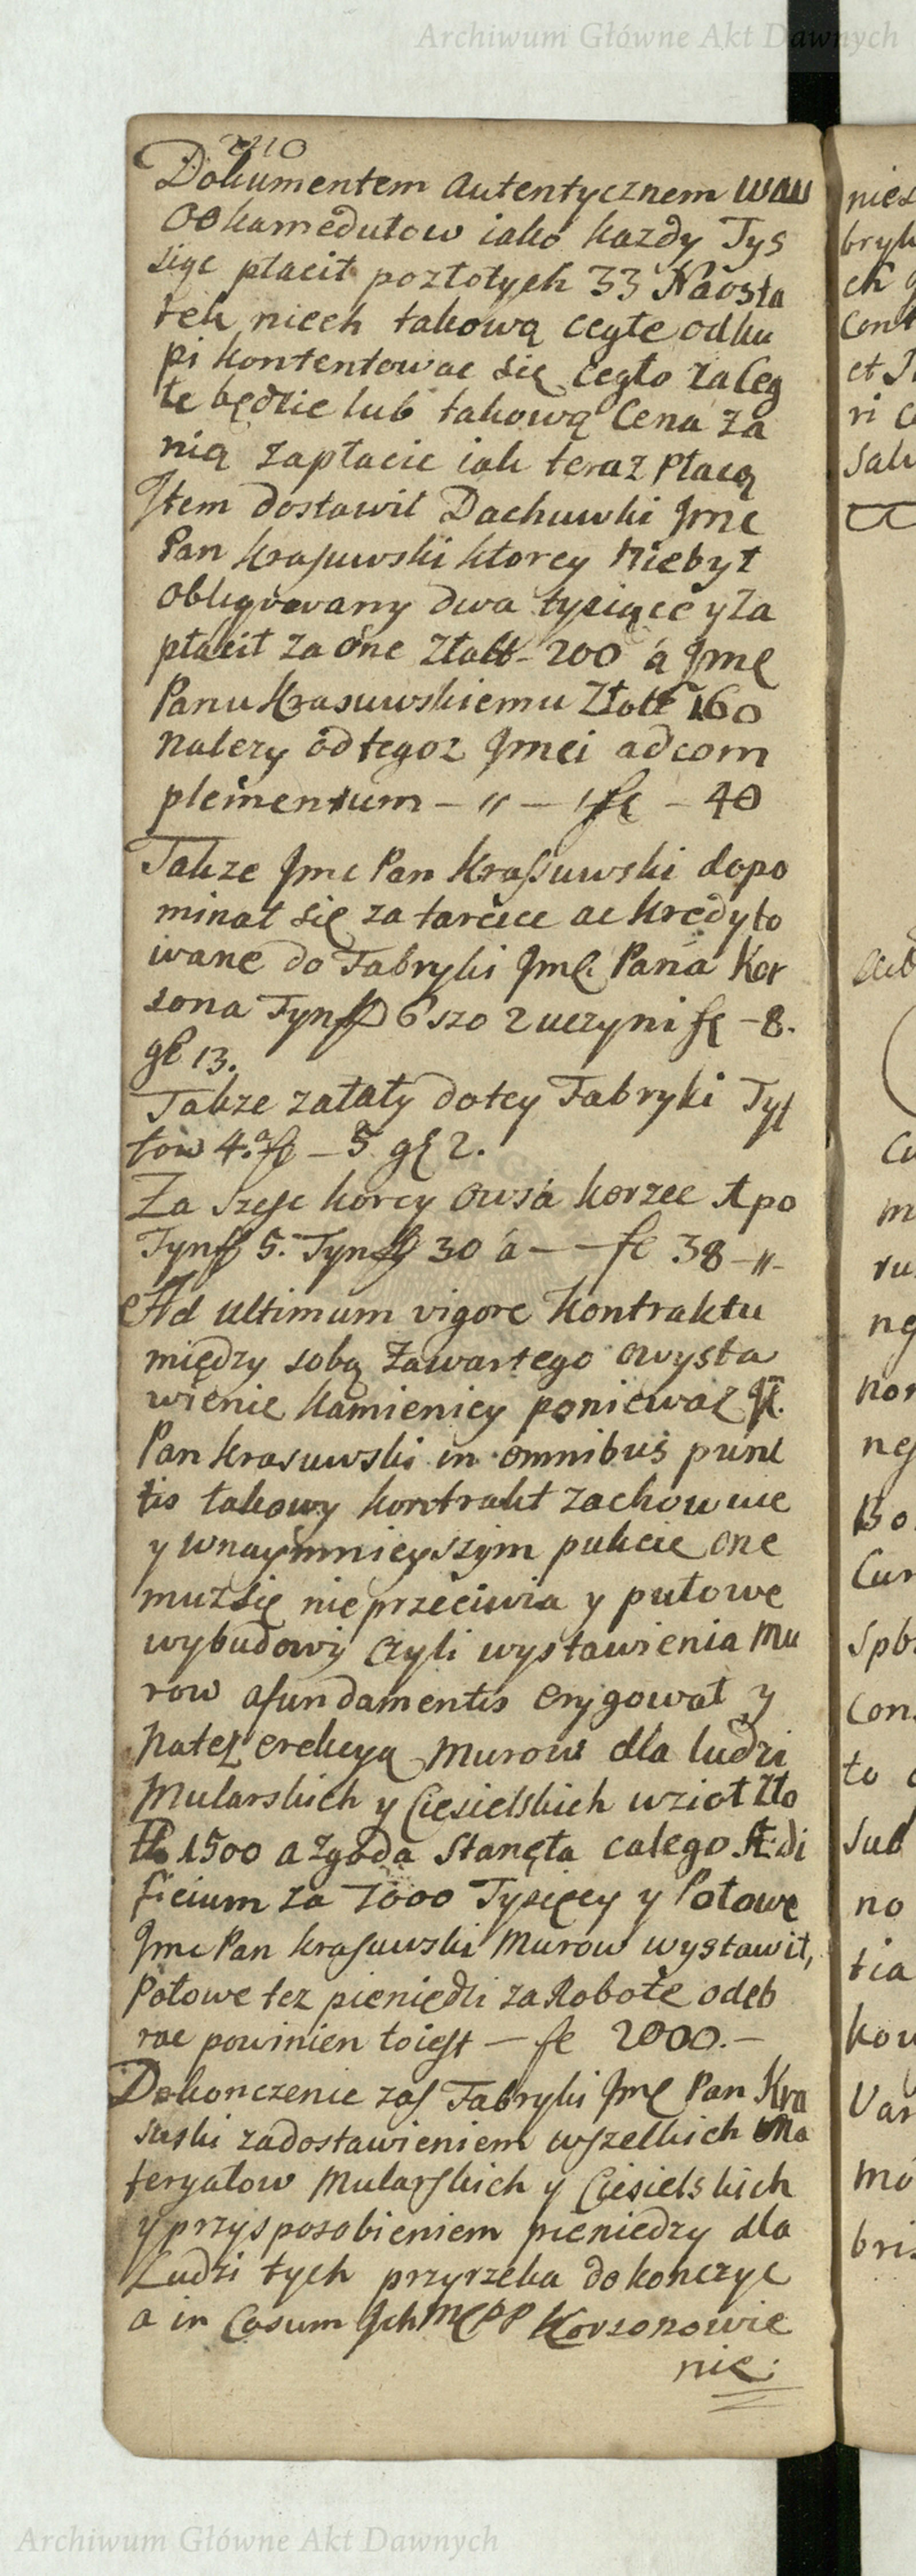 Archiwum Główne Akt Dawnych
Dokumentem autentycznem
OO kamedułow iako każdy Tys
siąc płacił pozłotych 33 Naosta
tek niech takową cegłe odku
pi kontentowac się cegło zaleg
łe będzie lub takową Cena za
nią zapłacic iak teraz płacą
Jtem dostawil Dachuwki Jme
Pan Krasuwski ktorey niebył
obligowany dwa tysiące y za
płacił za one złott 200 a Jme
Panu Krasuwskiemu Złott 160
nalezy odtegoz Jmci adcom
plementum — " — fl — 40
Takze Jme Pan Krasuwski dopo
minał się za tarcice ac kredyto
wane do Fabryki Jme Pana Kor
sona Tynff 6 szo 2 uczyni fl — 8.
gl 13.
Takze załaty dotey Fabryki Tyf
tow 4. a fl — 5 gl 2.
Za szesc korcy owsa korzec po
Tynff 5. Tynff 30 a — — fl 38 — "
Ad ultimum vigore kontraktu
między sobą zawartego owysta
wienie kamienicy poniewaz J.
Pan Krasuwski in omnibus punc
tis takowy kontrakt zachowuie
y wnaymnieyszym pukcie one
muzsię nieprzeciwia y pułowe
wybudowy czyli wystawienia Mu
row afundamentis erygował y
natęz erekcyą Murow dla ludzi
Mularskich y Ciesielskich wzioł zło
tt 1500 a zgoda stanęła całego Ædi
ficium za 7000 Tysięcy y Połowe
Jme Pan Krasuwski Murow wystawił,
Połowe tez pieniędzi za Robote odeb
rac powinien toiest — fl 2000. —
Dokonczenie zas Fabryki Jme Pan Kra
suski zadostawieniem wszelkich Ma
teryałow Mularskich y Ciesielskich
y przysposobieniem pieniedzy dla
Ludzi tych przyrzeka dokonczyc
a in Casum Jchmc PP Korsonowie
nie:
Archiwum Główne Akt Dawnych